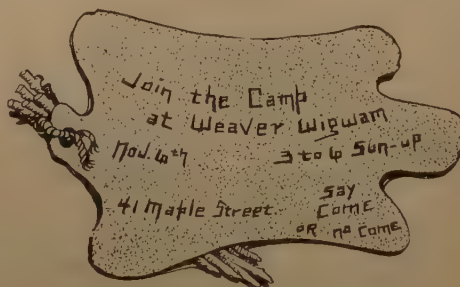 Join the Camp
at Weaver Wigwam
Nov. 6th 3 to 6 Sun-up
41 Maple Street. Say
Come
or no come